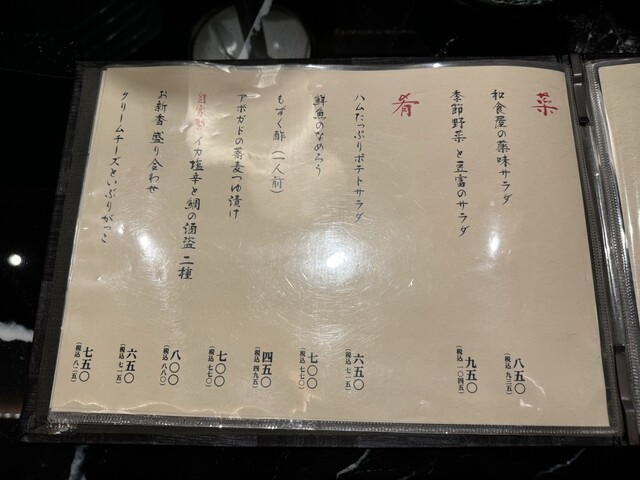 菜
和食屋の薬味サラダ
八五〇
(税込 九三五)
季節野菜と豆富のサラダ
九五〇
(税込 一〇四五)
肴
ハムたっぷりポテトサラダ
六五〇
(税込 七一五)
鮮魚のなめろう
七〇〇
(税込 七七〇)
もずく酢(一人前)
四五〇
(税込 四九五)
アボガドの蕎麦つゆ漬け
七〇〇
(税込 七七〇)
自家製 イカ塩辛と鯛の酒盗 二種
八〇〇
(税込 八八〇)
お新香 盛り合わせ
六五〇
(税込 七一五)
クリームチーズといぶりがっこ
七五〇
(税込 八二五)